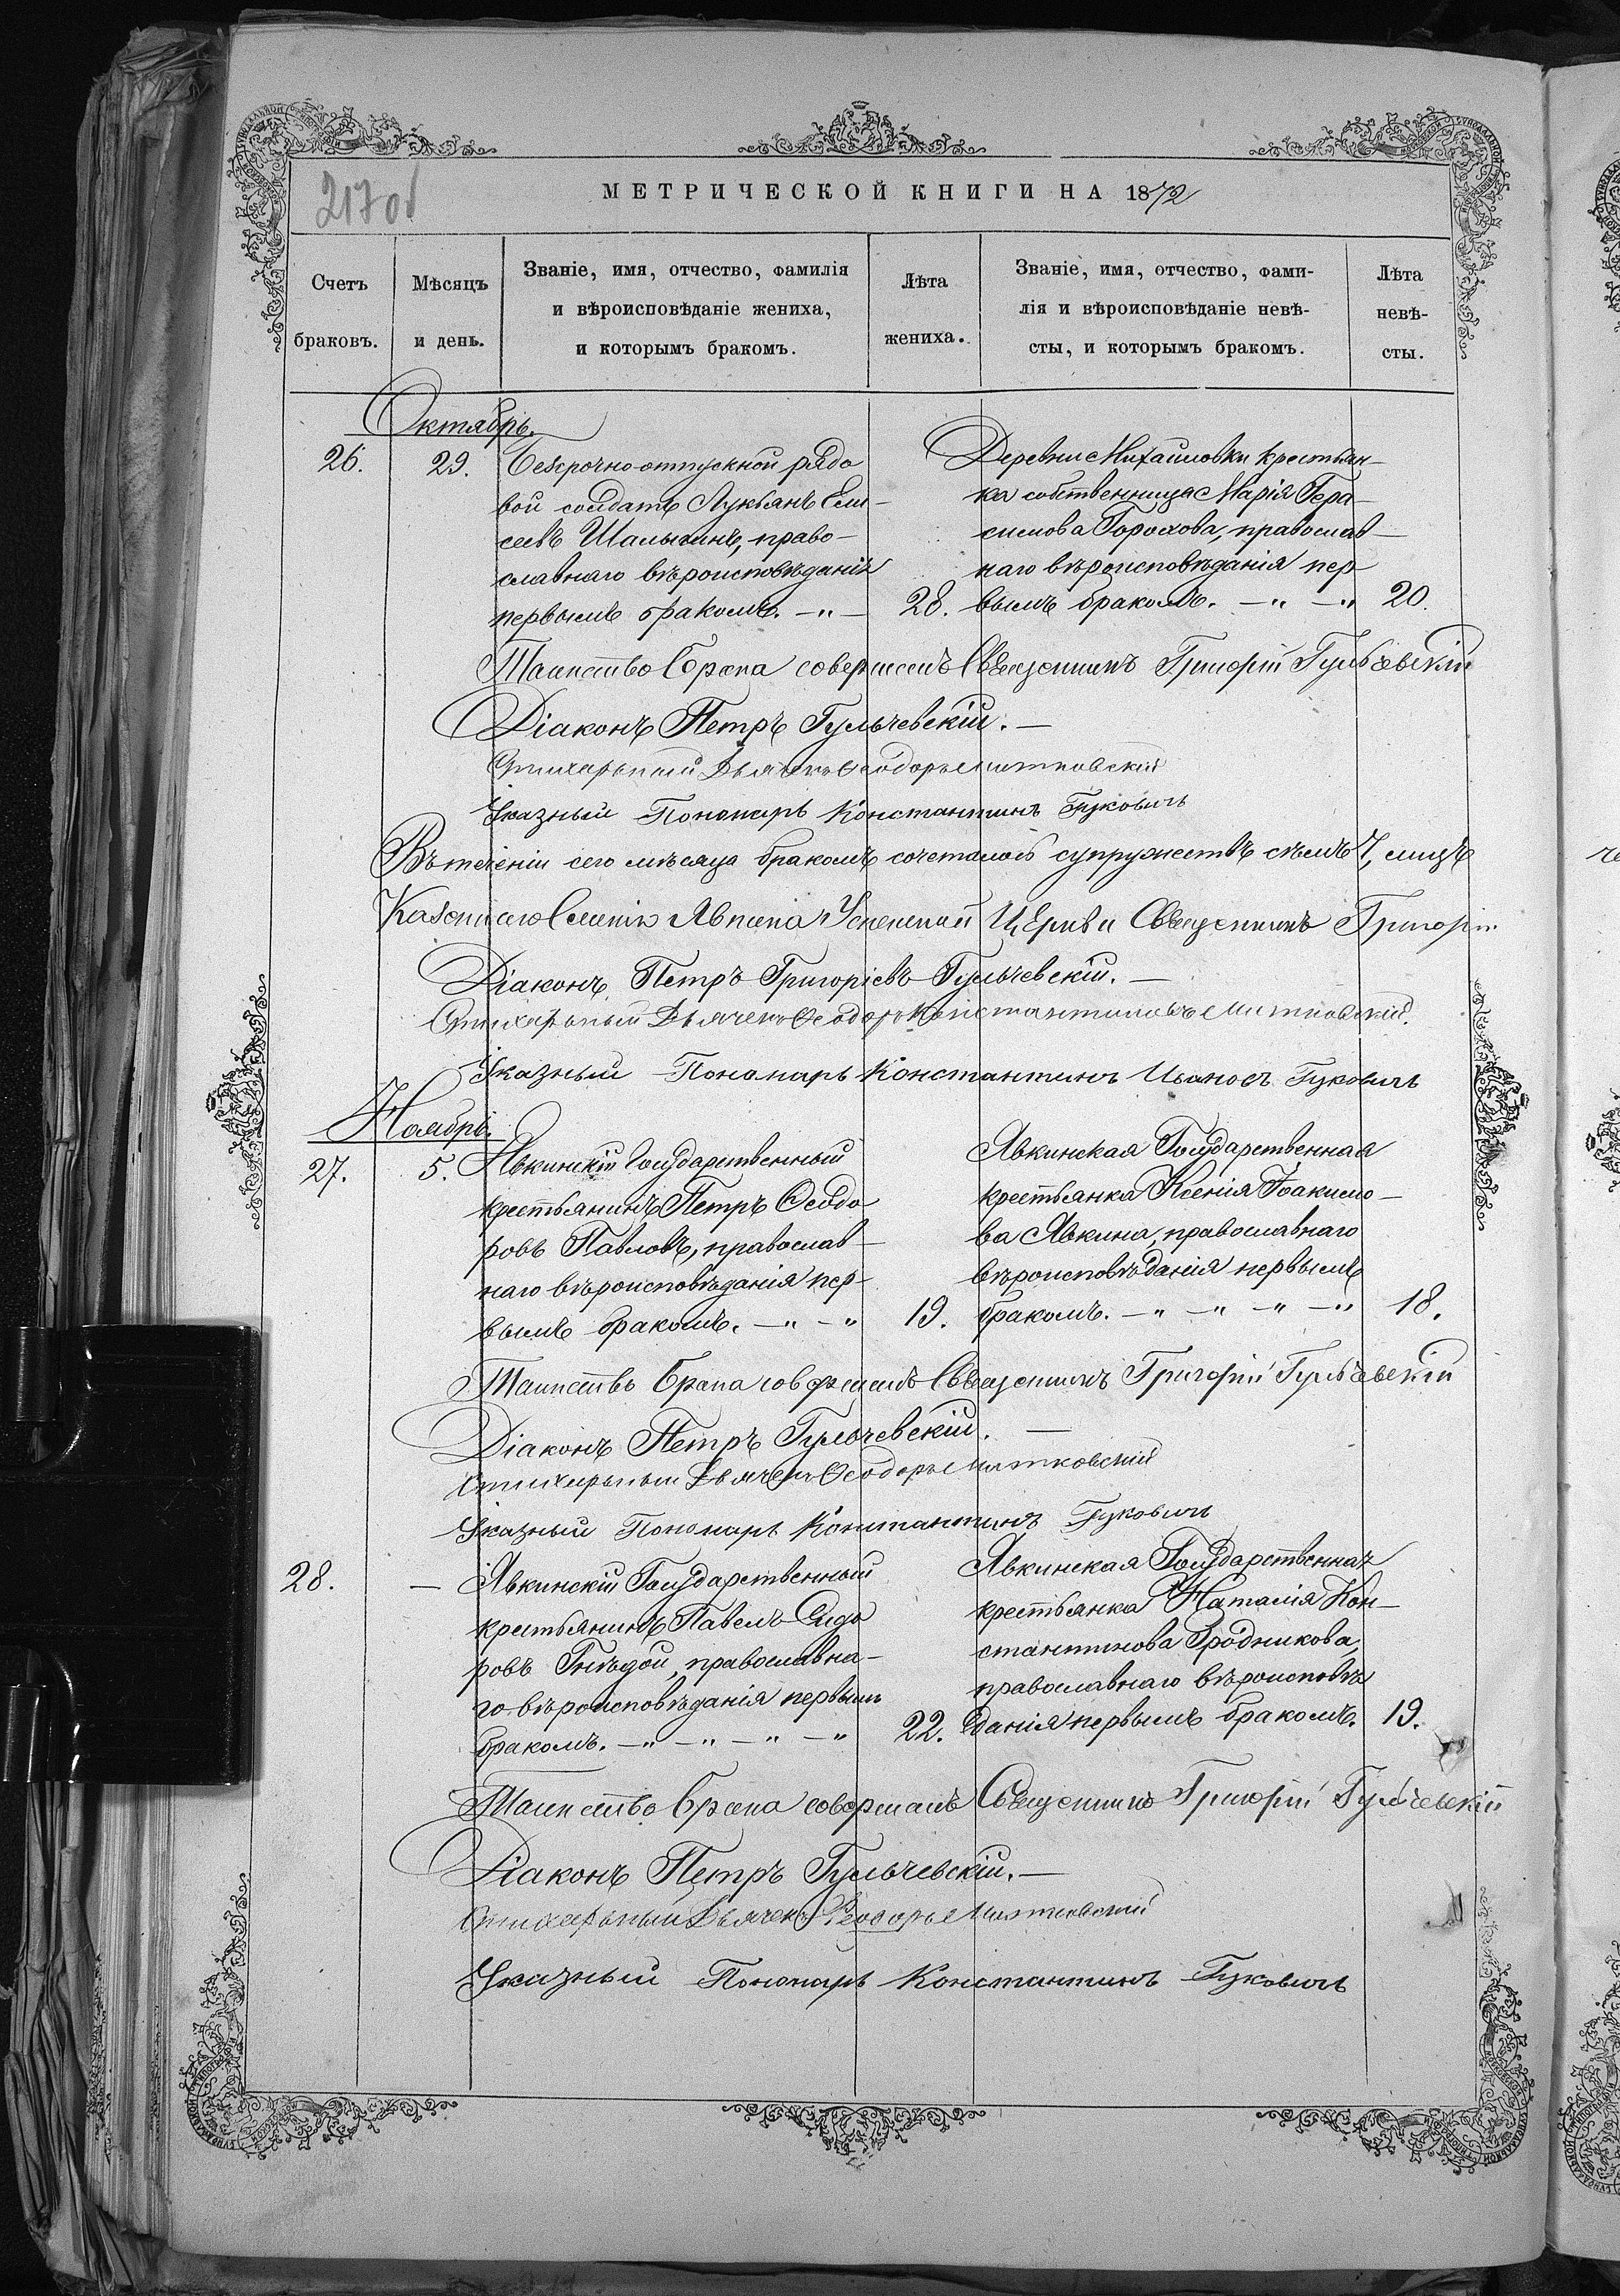 217об
МЕТРИЧЕСКОЙ КНИГИ НА 1872
Счетъ браковъ.
Мѣсяцъ и день.
Званіе, имя, отчество, фамилія
и вѣроисповѣданіе жениха,
и которымъ бракомъ.
Лѣта жениха.
Званіе, имя, отчество, фами-
лія и вѣроисповѣданіе невѣ-
сты, и которымъ бракомъ.
Лѣта невѣ-
сты.
Октябрь.
26.
29.
Безсрочно-отпускной рядо
вой солдатъ Лукьянъ Ели-
сеевъ Шалыгинъ, право-
славнаго вѣроисповѣданія
первымъ бракомъ. -"-
28.
Деревни Михайловки крестьян-
ка собственница Марія Гера-
симова Горохова, православ-
наго вѣроисповѣданія пер-
вымъ бракомъ. -" -"
20.
Таинство брака совершилъ Священникъ Григорій Гульчевскій
Діаконъ Петръ Гульчевскій. -
Стихарный Дьячекъ Ѳеодоръ Митковскій
Указный Пономарь Константинъ Гуковичъ
Въ теченіи сего мѣсяца бракомъ сочеталось супружествъ семь 7, лицъ
Казеннаго Селенія Явкина Успенской Церкви Священникъ Григорій
Діаконъ Петръ Григоріевъ Гульчевскій. -
Стихарный Дьячекъ Ѳеодоръ Константиновъ Митковскій.
Указный Пономарь Константинъ Гуковичъ
Ноябрь.
27.
5.
Явкинскій Государственный
крестьянинъ Петръ Ѳеодо
ровъ Павловъ, православ-
наго вѣроисповѣданія пер-
вымъ бракомъ. -" -"
19.
Явкинская Государственная
крестьянка Ксенія Іоакимо-
ва Явкина, православнаго
вѣроисповѣданія первымъ
бракомъ. -" -" -" -"
18.
Таинство брака совершилъ Священникъ Григорій Гульчевскій
Діаконъ Петръ Гульчевскій. -
Стихарный Дьячекъ Ѳеодоръ Митковскій
Указный Пономарь Константинъ Гуковичъ
28.
-
Явкинскій Государственный
крестьянинъ Павелъ Сидо
ровъ Гнѣдой, православна-
го вѣроисповѣданія первымъ
бракомъ. -" -" -" -"
22.
Явкинская Государственная
крестьянка Наталія Кон-
стантинова Бродникова,
православнаго вѣроисповѣ
данія первымъ бракомъ.
19.
Таинство брака совершилъ Священникъ Григорій Гульчевскій
Діаконъ Петръ Гульчевскій. -
Стихарный Дьячекъ Ѳеодоръ Митковскій
Указный Пономарь Константинъ Гуковичъ